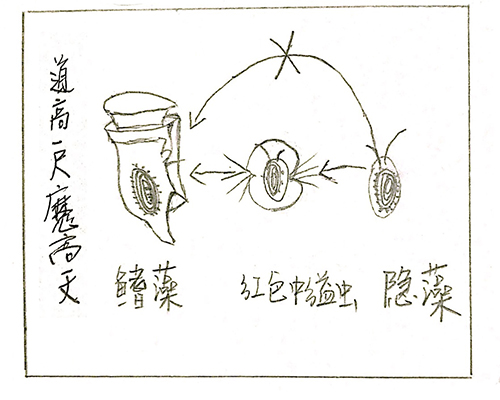 道高一尺魔高丈
鳍藻
红色中缢虫
隐藻